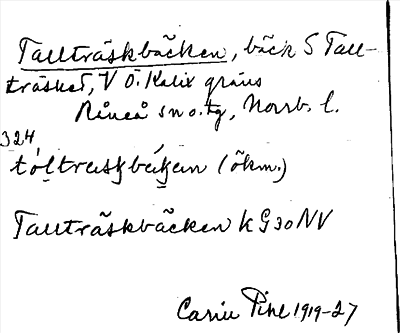 Tallträskbäcken, bäck S Tall-
träsket, V Ö. Kalix gräns
Råneå sn o. tg, Norrb. l.
324,
(õkm.)
Tallträskbäcken k G30 NV
Carin Pihl 1919-27